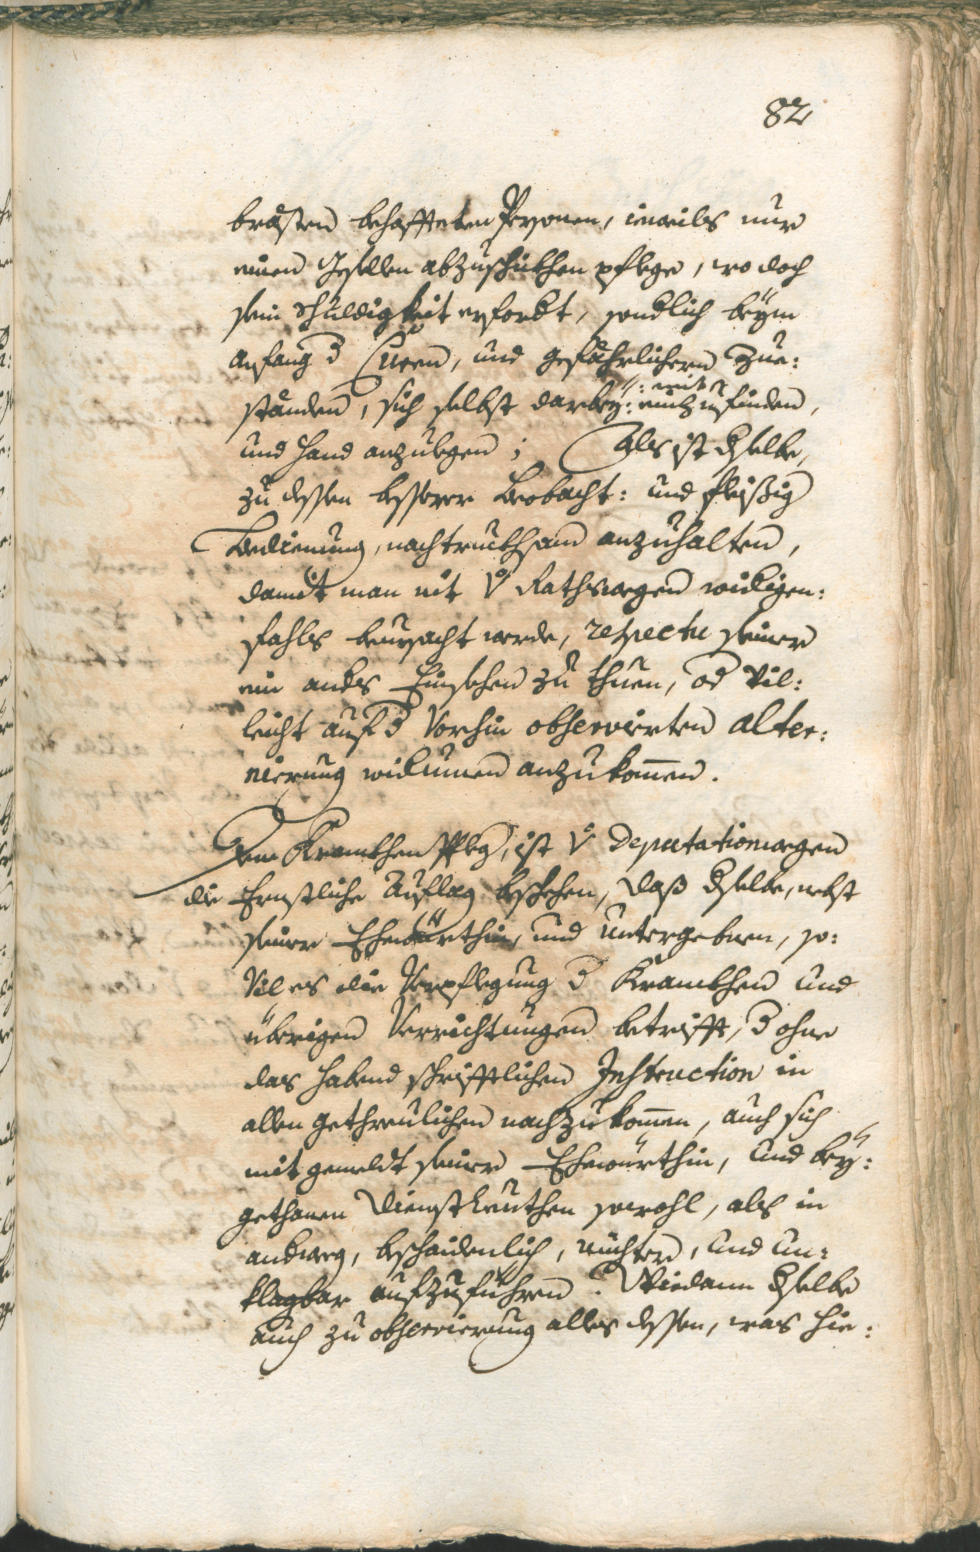 82
brästen behaffteten Persohnen, ieweils nur
einen Gesellen abzuschickhen pflege, wo doch
sein Schuldigkeit erfordt, sondlich beÿm
anfang d Curen, und gefährlichern Zue:
ständen, sich selbst darbeÿ: mit einzufinden,
und Hand anzulegen; Als ist dselbe,
zu dessen besserer beobacht: und fleißig
Bedienung, nachtruckhsam anzuhalten,
damit man nit v Rathswegen widrigen:
fahls beursacht werde, respectu seiner
ein ands Einsehen zu thuen, od Vil:
leicht auf d Vorhin observierten alter:
nierung widerumen anzukomen.
Dem Kranckhen Pfleg, ist v Deputationwegen
die Ernstliche Auflag beschehen, daß dselbe, nebst
seiner Ehewürthin, und Untergebnen, so:
Vil es die Verpflegung d Kranckhen und
übrigen Verrichtungen betrifft, d ohne
das habend schrifftlichen Instruction in
allen gethreulichen nachzukomen, auch sich
mit gemeldt seiner Ehewürthin, und beÿ:
gethanen Dienstleuthen sowohl, als in
andweg, beschaidenlich, nüchter, und un:
klagbar aufzuführen. Wiedann dselbe
auch zu observierung alles dessen, was hie: